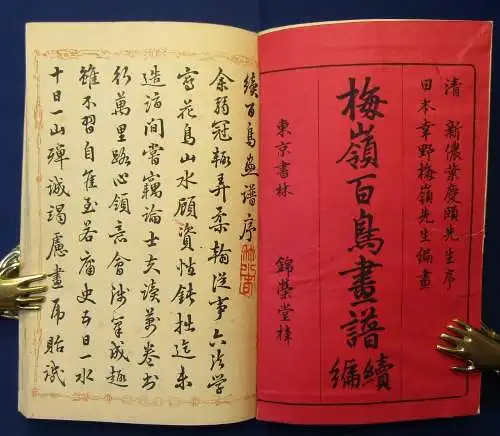 清 新儂葉慶頤先生序
日本幸野梅嶺先生編畫
梅嶺百鳥畫譜
續編
東京書林 錦榮堂梓
續百鳥畫譜序
余弱冠輒弄柔翰從事六法學
寫花鳥山水顧資性鈍拙迄未
造詣間嘗竊論士夫讀萬卷書
行萬里路心領意會涉筆成趣
雖不習自佳至若庸史五日一水
十日一山殫誠竭慮畫虎貽譏